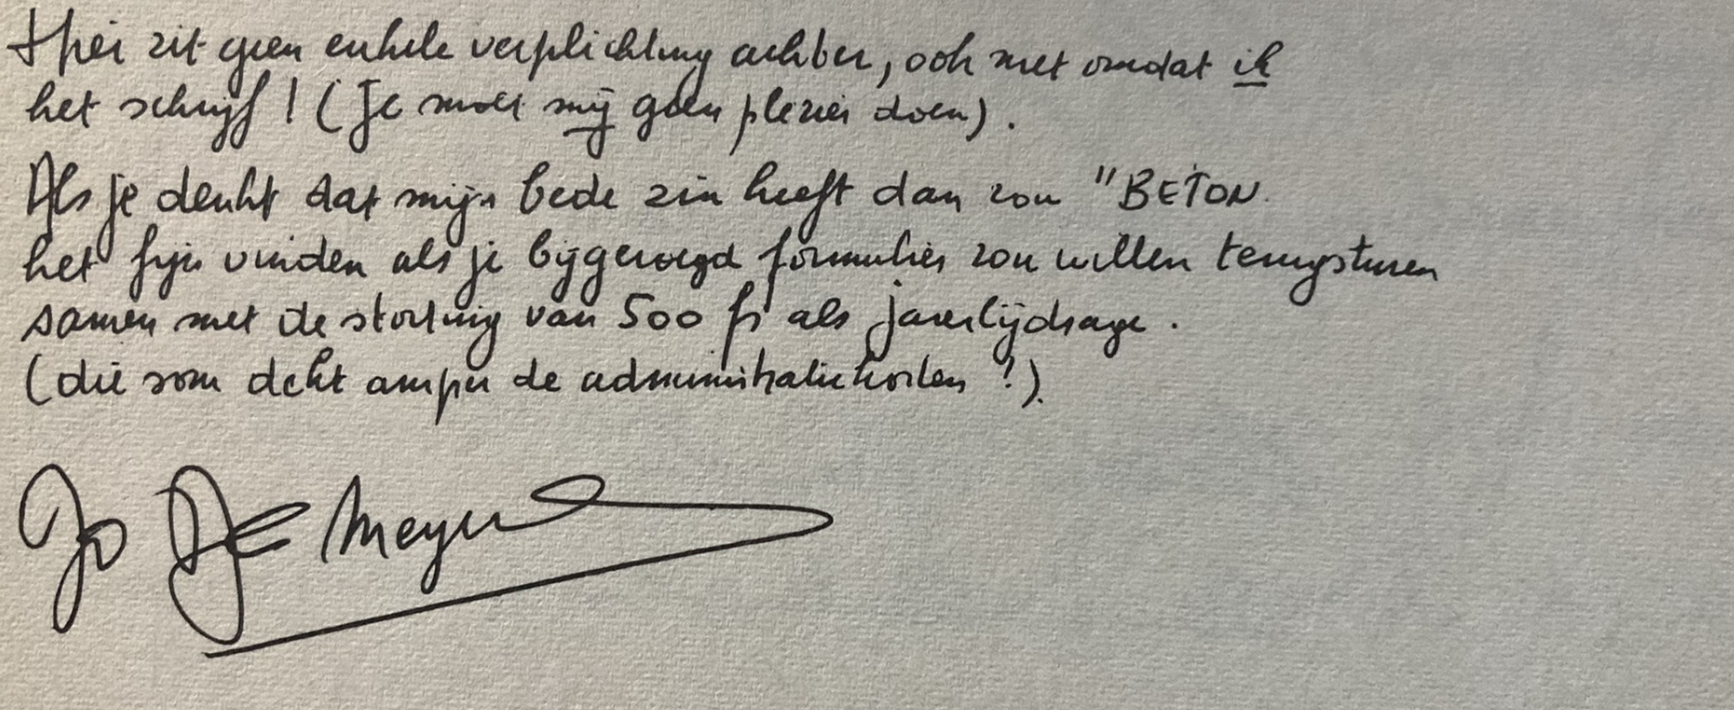 Hier zit geen enkele verplichting achter, ook niet omdat ik
het schrijf! (Je moet mij geen plezier doen).
Als je denkt dat mijn bede zin heeft dan zou "BETON
het fijn vinden als je bijgevoegd formulier zou willen terugsturen
samen met de storting van 500 fr als jaarbijdrage.
(die som dekt amper de administratiekosten!).
Jo De Meyer